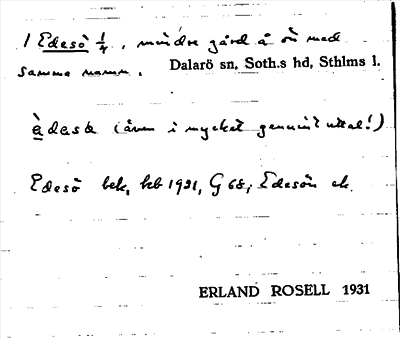 1 Edesö 1/4, mindre gård å ön med
samma namn.
Dalarö sn, Soth.s hd, Sthlms l.
(även i mycket genuint uttal!)
Edesö bek, kb 1921, G 68; Edesön ek.
ERLAND ROSELL 1931